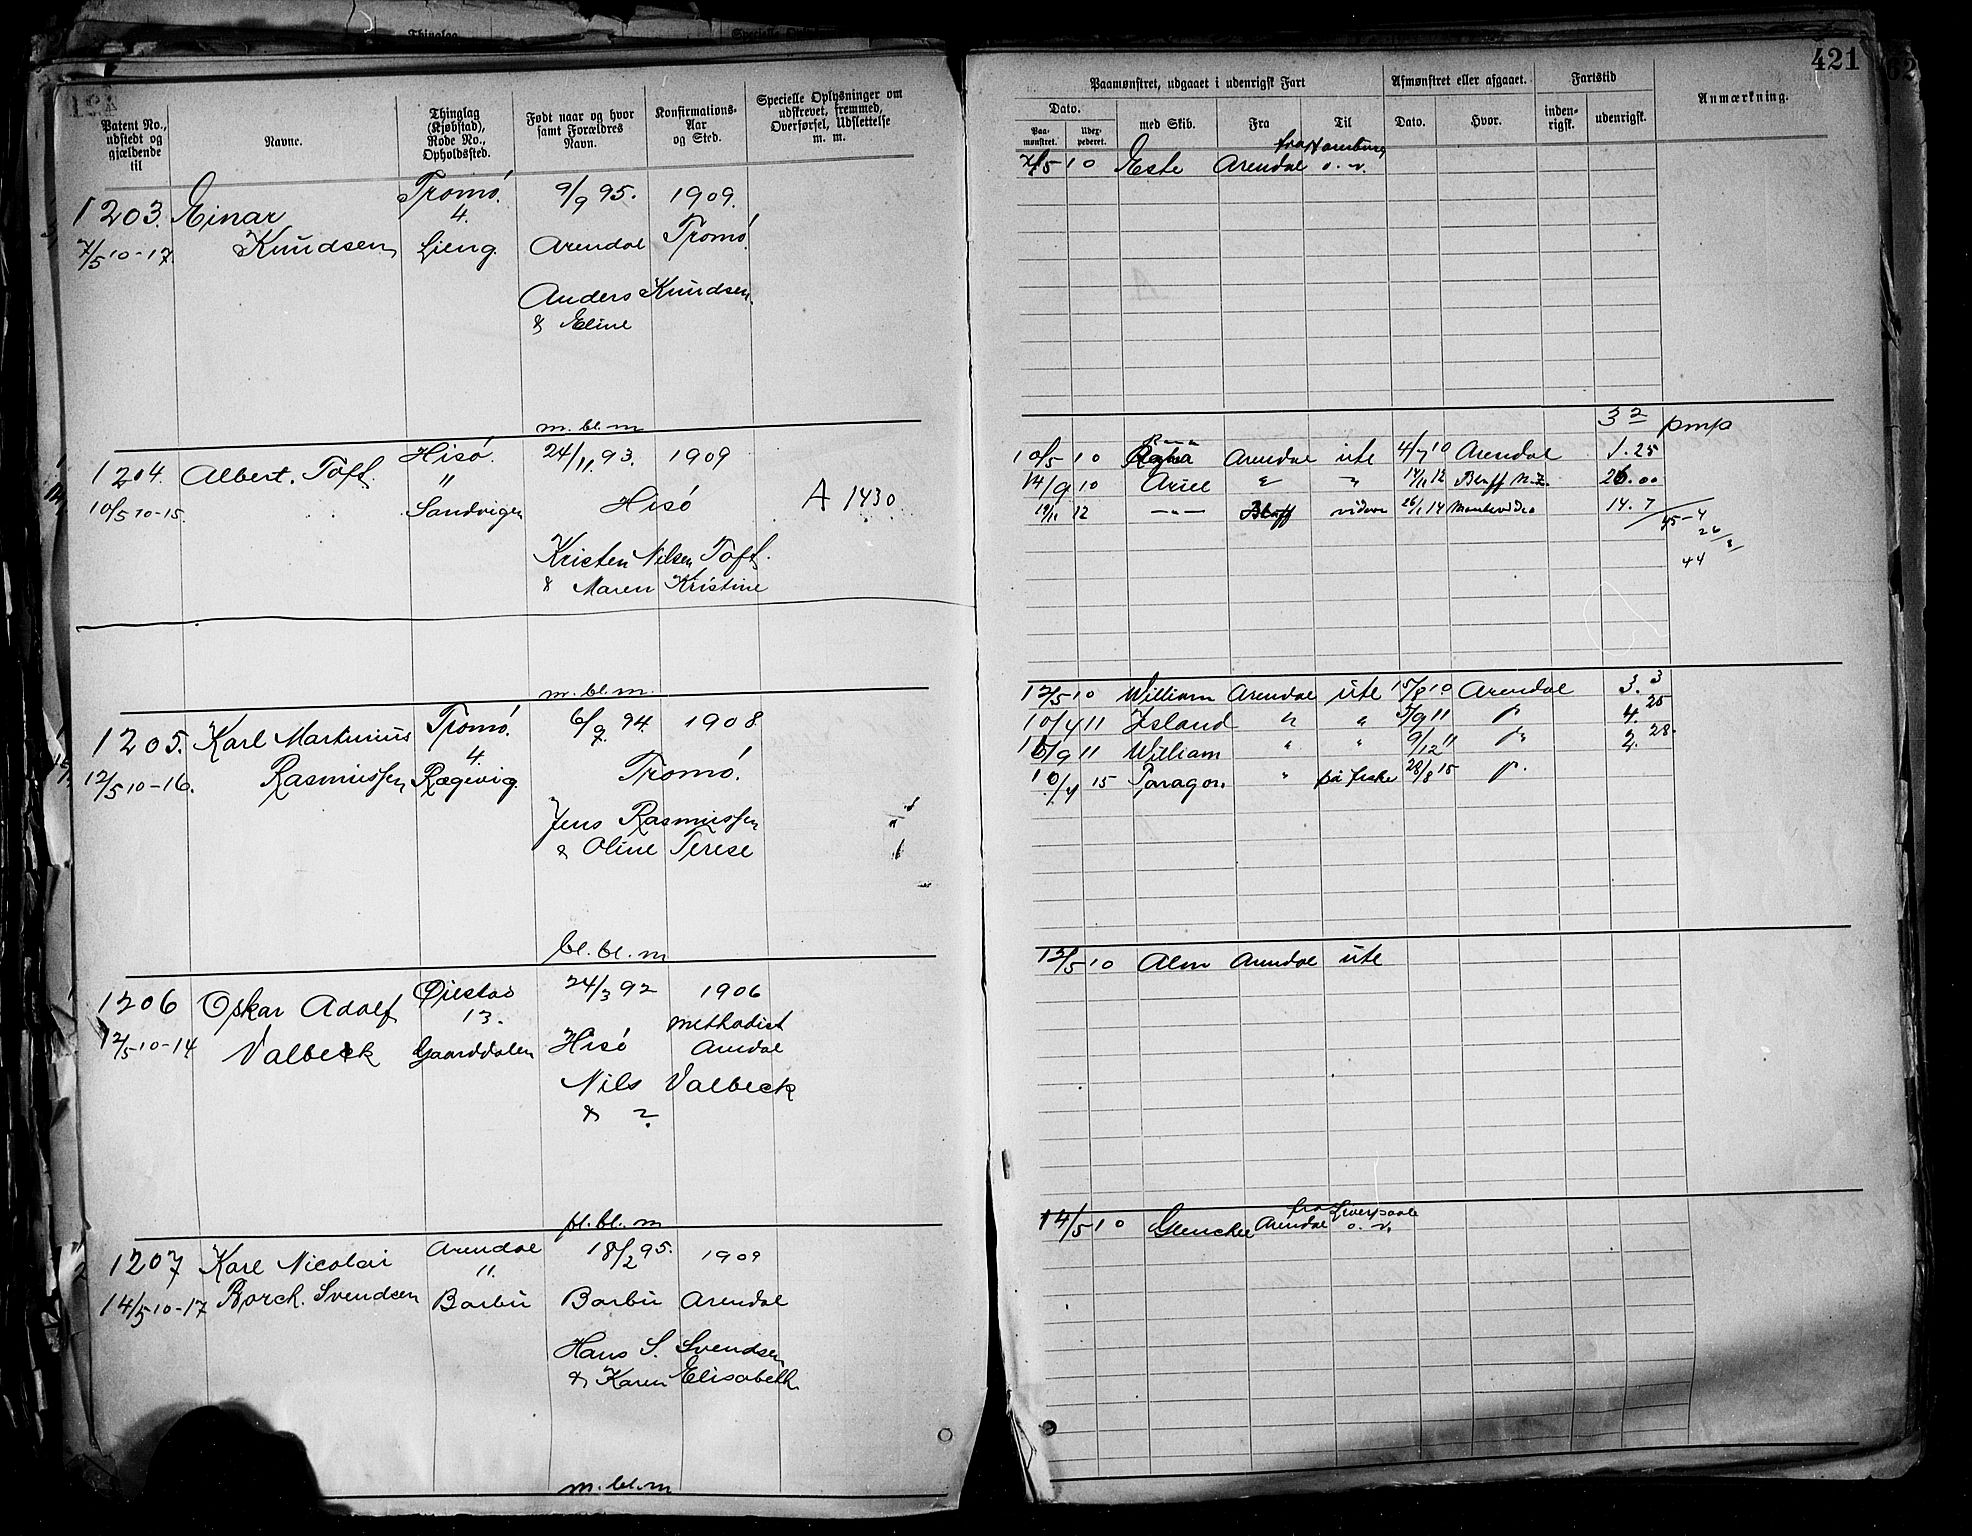 Thinglag
421
Patent No., udstedt og gjældende til
Navne.
Thinglag (Kjøbstad), Rode No., Opholdssted.
Født naar og hvor samt Forældres Navn.
Konfirmations-Aar og Sted.
Specielle Oplysninger om udskrevet, fremmed, Overførsel, Udslettelse m. m.
1203. Einar Tromø. 9/9 95. 1909.
4.
7/5 10-17. Knudsen Gjeng. Arendal Tromø.
Anders Knudsen
& Eline
m. bl. m
1204. Albert. Toft. Hisø. 24/11. 93. 1909
"
10/5 10-15. Sandvigen Hisø A 1430
Kristen Nilsen Toft.
& Maren Kristine
m. bl. m.
1205. Karl Martinius Tromø. 6/9. 94. 1908
4.
12/5 10-16. Rasmussen Rægevig. Tromø.
Jens Rasmussen
& Oline Terese
bl. bl. m
1206 Oskar Adolf Øiestad 24/3 92 1906
13. methodist
12/5 10-14 Valbeck Gaarddalen Hisø Arendal
Nils Valbeck
& ?
bl. bl. m
1207 Karl Nicolai Arendal 18/2 95. 1909
11.
14/5 10-17 Borch. Svendsen Barbu Barbu Arendal
Hans S. Svendsen
& Karen Elisabeth
m. bl. m
Paamønstret, udgaaet i udenrigsk Fart
Afmønstret eller afgaaet.
Fartstid
Anmærkning.
Dato.
Paa-mønstret.
Udex-pederet.
med Skib.
Fra
Til
Dato.
Hvor.
inden-rigsk.
udenrigsk.
fra Hamburg
7/5 10 Este Arendal o. v.
3 2 pmp
10/5 10 Arendal ute 4/7 10 Arendal 1. 25
14/9 10 Ariel " " 14/11 12 Bluff N.Z. 26.00
19/11 12 —"— Bluff videre 26/1 14 Montevideo 14. 7
45-4
26/8
44
12/5 10 William Arendal ute 15/8 10 Arendal 3. 3
10/4 11 Island " " 5/9 11 4. 25
16/9 11 William " " 9/12 11 2. 28.
10/4 15 Paragon " på fiske 28/8 15
12/5 10 Alm Arendal ute
fra Liverpool
14/5 10 Arendal o. v.